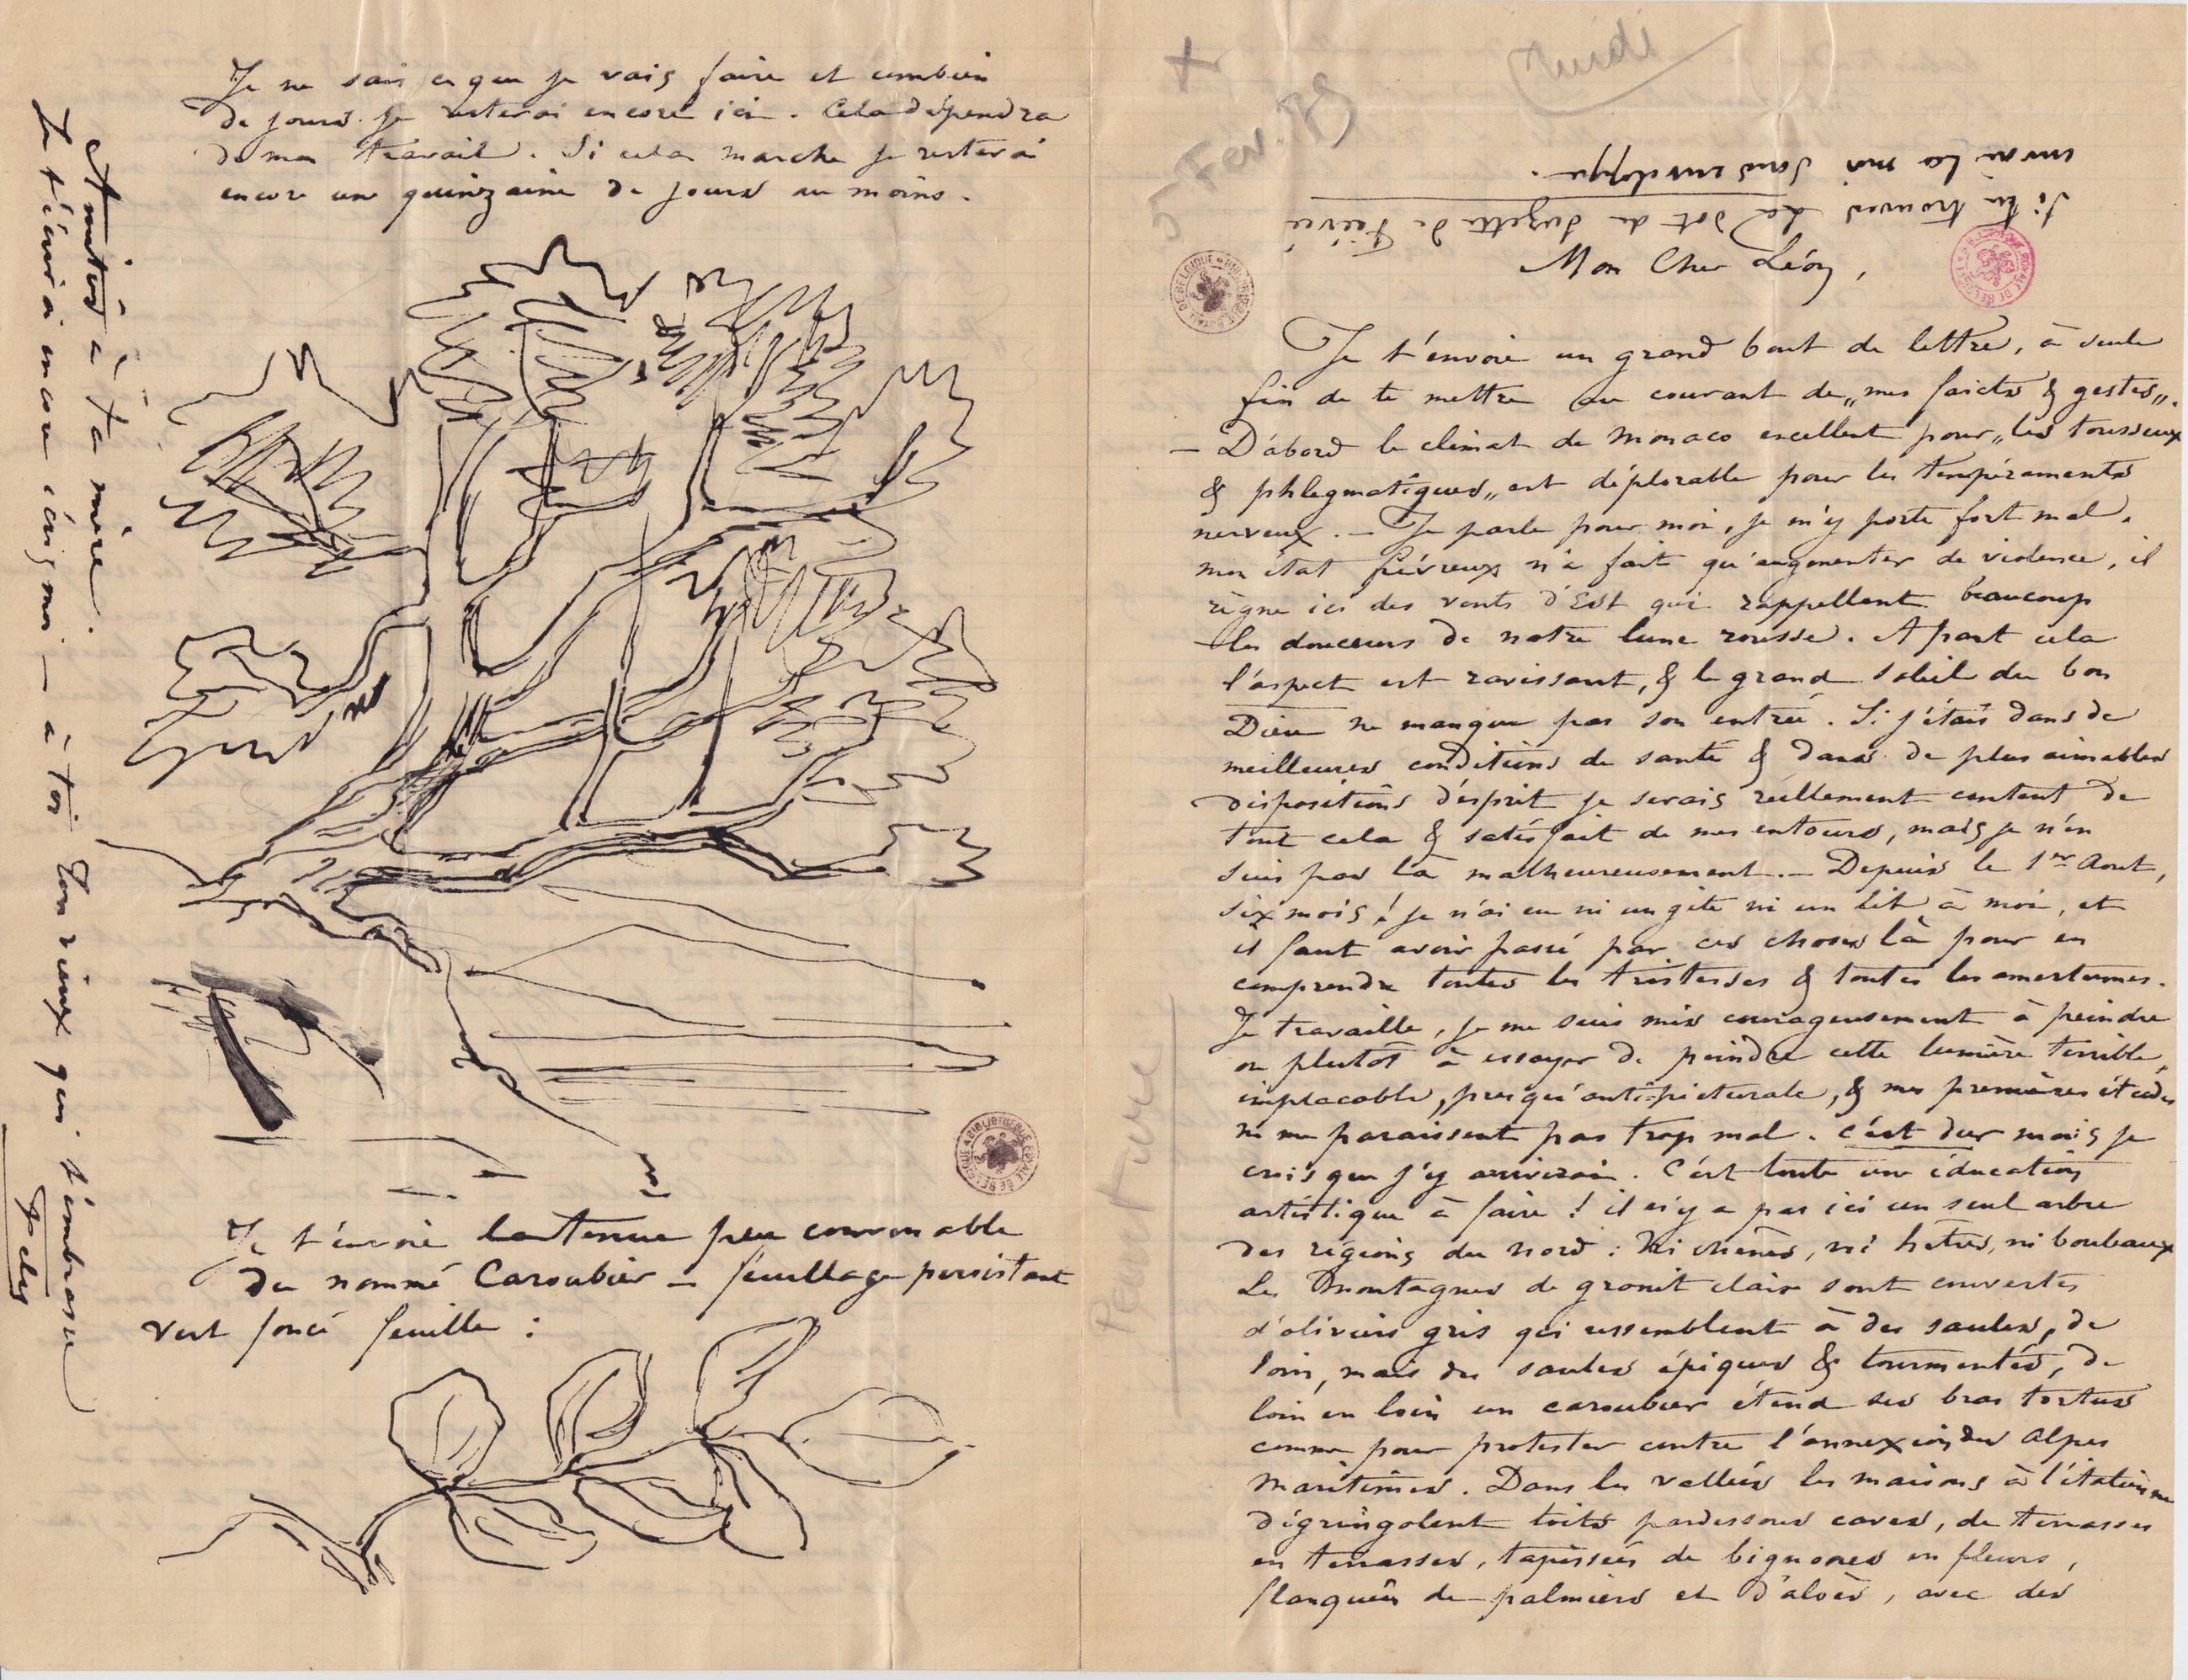 Je ne sais ce que je vais faire et combien
de jours je resterai encore ici. Cela dépendra
de mon travail. Si cela marche je resterai
encore une quinzaine de jours au moins.
Je t'envoie la tenue peu convenable
du nommé Caroubier — feuillage persistant
vert foncé feuille :
Amitiés à ta mère.
Je t'écrirai encore écris moi — à toi ton vieux qui t'embrasse
Fély
X
5 Fev. 79
Si tu trouves La Dot de Suzette de Fiévée
envoie la moi sous enveloppe.
Mon Cher Léon,
Je t'envoie un grand bout de lettre, à seule
fin de te mettre au courant de „mes faicts & gestes„.
— D'abord le climat de Monaco excellent pour „les tousseux
& phlegmatiques„ est déplorable pour les tempéraments
nerveux. — Je parle pour moi, je m'y porte fort mal.
mon état fiévreux n'a fait qu'augmenter de violence, il
règne ici des vents d'Est qui rappellent beaucoup
les douceurs de notre lune rousse. A part cela
l'aspect est ravissant, & le grand soleil du bon
Dieu ne manque pas son entrée. Si j'étais dans de
meilleures conditions de santé & dans de plus aimables
dispositions d'esprit je serais réellement content de
tout cela & satisfait de mes entours, mais je n'en
suis pas là malheureusement. — Depuis le 1er Aout,
six mois ! je n'ai eu ni un gîte ni un lit à moi, et
il faut avoir passé par ces choses là pour en
comprendre toutes les tristesses & toutes les amertumes.
Je travaille, je me suis mis courageusement à peindre
ou plutôt à essayer de peindre cette lumière terrible,
implacable, presqu'anti-picturale, & mes premières études
ne me paraissent pas trop mal. c'est dur mais je
crois que j'y arriverai. C'est toute une éducation
artistique à faire ! il n'y a pas ici un seul arbre
des régions du nord : Ni chênes, ni hêtres, ni bouleaux
Les Montagnes de granit clair sont couvertes
d'oliviers gris qui ressemblent à des saules, de
loin, mais des saules épiques & tourmentés, de
loin en loin un caroubier étend ses bras tortus
comme pour protester contre l'annexion des Alpes
Maritimes. Dans les vallées les maisons à l'italienne
dégringolent toits pardessous caves, de terrasses
en terrasses, tapissées de bignones en fleurs,
flanquées de palmiers et d'aloès, avec des
Peinture